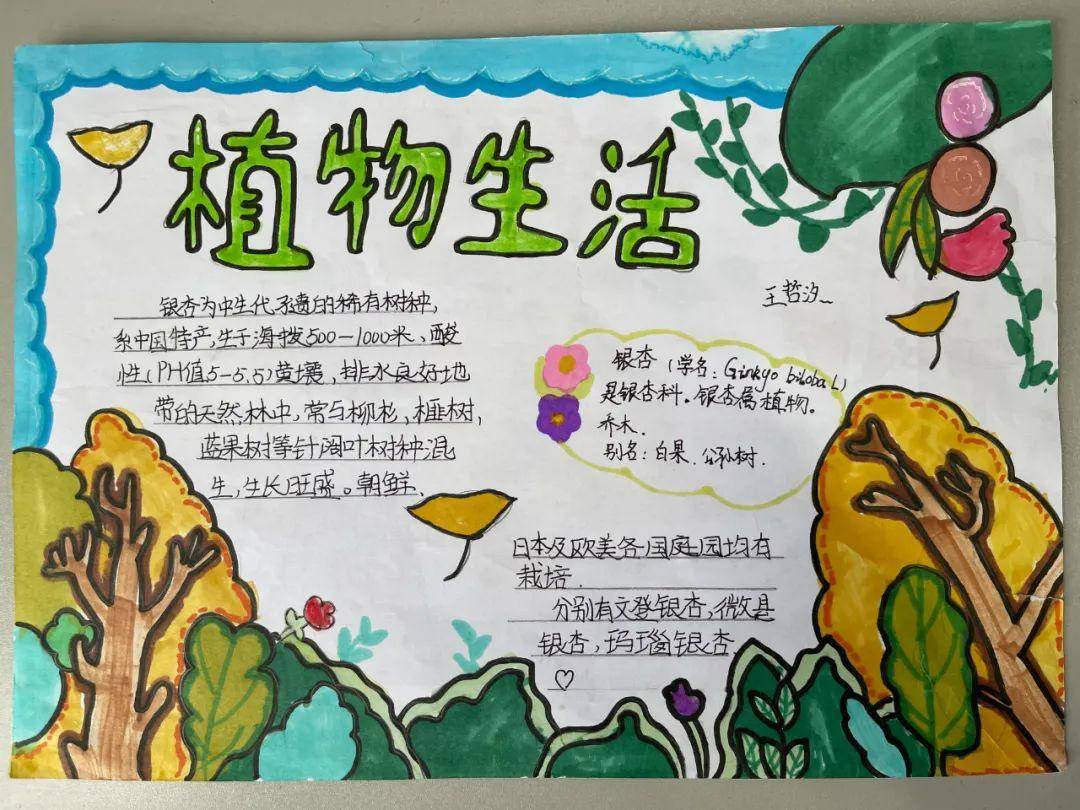 植物生活
王哲汐
银杏为中生代孑遗的稀有树种,
系中国特产,生于海拔500-1000米、酸
性(PH值5-5.5)黄壤、排水良好地
带的天然林中,常与柳杉、榧树,
蓝果树等针阔叶树种混
生,生长旺盛。朝鲜、
银杏(学名:Ginkgo biloba L)
是银杏科。银杏属植物。
乔木.
别名:白果、公孙树.
日本及欧美各国庭园均有
栽培.
分别有文登银杏,微县
银杏,玛瑙银杏.